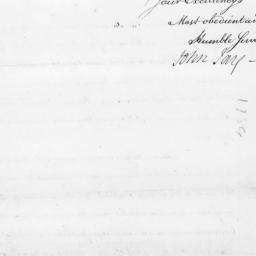 Your Excellency's
Most obedient an
Humble Ser
John Jay